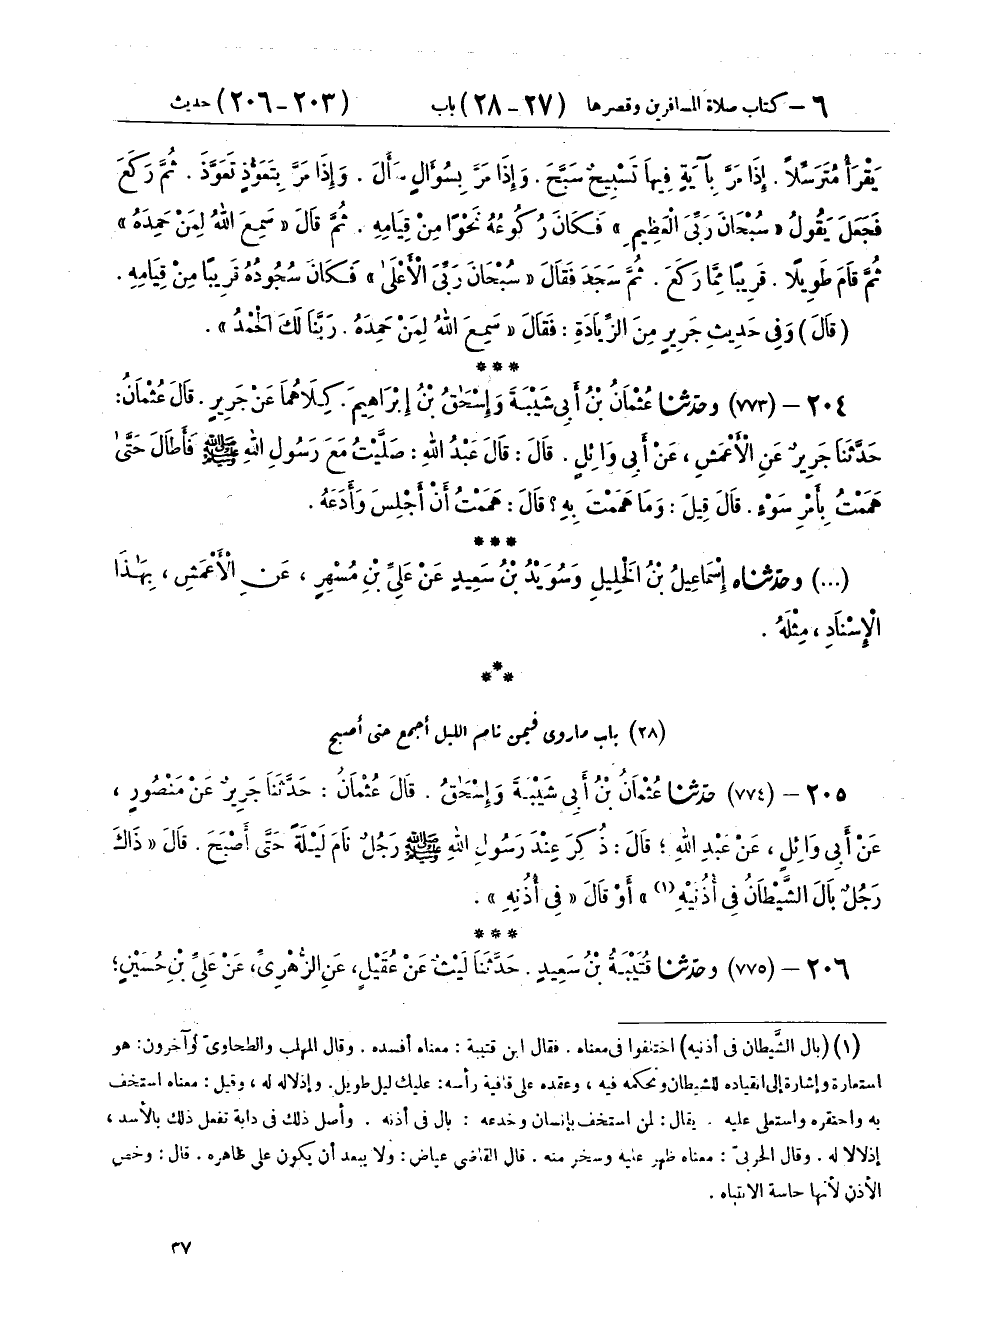 ٦ – كتاب صلاة المسافرين وقصرها (٢٧ – ٢٨) باب (٢٠٣ – ٢٠٦) حديث
يَقْرَأُ مُتَرَسِّلًا . إِذَا مَرَّ بِآيَةٍ فِيهَا تَسْبِيحٌ سَبَّحَ . وَإِذَا مَرَّ بِسُؤَالٍ سَأَلَ . وَإِذَا مَرَّ بِتَعَوُّذٍ تَعَوَّذَ . ثُمَّ رَكَعَ
فَجَعَلَ يَقُولُ « سُبْحَانَ رَبِّيَ الْعَظِيمِ » فَكَانَ رُكُوعُهُ نَحْوًا مِنْ قِيَامِهِ . ثُمَّ قَالَ « سَمِعَ اللهُ لِمَنْ حَمِدَهُ »
ثُمَّ قَامَ طَوِيلًا . قَرِيبًا مِمَّا رَكَعَ . ثُمَّ سَجَدَ فَقَالَ « سُبْحَانَ رَبِّيَ الْأَعْلَىٰ » فَكَانَ سُجُودُهُ قَرِيبًا مِنْ قِيَامِهِ .
(قَالَ) وَفِي حَدِيثِ جَرِيرٍ مِنَ الزِّيَادَةِ : فَقَالَ « سَمِعَ اللهُ لِمَنْ حَمِدَهُ . رَبَّنَا لَكَ الْحَمْدُ » .
***
٢٠٤ – (٧٧٣) وحَدَّثَنَا عُثْمَانُ بْنُ أَبِي شَيْبَةَ وَإِسْحَاقُ بْنُ إِبْرَاهِيمَ . كِلَاهُمَا عَنْ جَرِيرٍ . قَالَ عُثْمَانُ :
حَدَّثَنَا جَرِيرٌ عَنِ الْأَعْمَشِ ، عَنْ أَبِي وَائِلٍ . قَالَ : قَالَ عَبْدُ اللهِ : صَلَّيْتُ مَعَ رَسُولِ اللهِ ﷺ فَأَطَالَ حَتَّىٰ
هَمَمْتُ بِأَمْرِ سَوْءٍ . قَالَ قِيلَ : وَمَا هَمَمْتَ بِهِ ؟ قَالَ : هَمَمْتُ أَنْ أَجْلِسَ وَأَدَعَهُ .
***
(...) وحَدَّثَنَاه إِسْمَاعِيلُ بْنُ الْخَلِيلِ وَسُوَيْدُ بْنُ سَعِيدٍ عَنْ عَلِيِّ بْنِ مُسْهِرٍ ، عَنِ الْأَعْمَشِ ، بِهَٰذَا
الْإِسْنَادِ ، مِثْلَهُ .
***
(٢٨) باب ماروى فيمن نام الليل أجمع حتى أصبح
٢٠٥ – (٧٧٤) حَدَّثَنَا عُثْمَانُ بْنُ أَبِي شَيْبَةَ وَإِسْحَاقُ . قَالَ عُثْمَانُ : حَدَّثَنَا جَرِيرٌ عَنْ مَنْصُورٍ ،
عَنْ أَبِي وَائِلٍ ، عَنْ عَبْدِ اللهِ ؛ قَالَ : ذُكِرَ عِنْدَ رَسُولِ اللهِ ﷺ رَجُلٌ نَامَ لَيْلَةً حَتَّى أَصْبَحَ . قَالَ « ذَاكَ
رَجُلٌ بَالَ الشَّيْطَانُ فِي أُذُنَيْهِ (١) » أَوْ قَالَ « فِي أُذُنِهِ » .
***
٢٠٦ – (٧٧٥) وحَدَّثَنَا قُتَيْبَةُ بْنُ سَعِيدٍ . حَدَّثَنَا لَيْثٌ عَنْ عُقَيْلٍ ، عَنِ الزُّهْرِيِّ ، عَنْ عَلِيِّ بْنِ حُسَيْنٍ ؛
(١) (بال الشيطان فى أذنيه) اختلفوا فى معناه . فقال ابن قتيبة : معناه أفسده . وقال المهلب والطحاوىّ وآخرون : هو
استعارة وإشارة إلى انقياده للشيطان وتحكمه فيه ، وعقده على قافية رأسه : عليك ليل طويل . وإذلاله له ، وقيل : معناه استخف
به واحتقره واستعلى عليه . يقال : لمن استخف بإنسان وخدعه : بال فى أذنه . وأصل ذلك فى دابة تفعل ذلك بالأسد ،
إذلالا له . وقال الحربىّ : معناه ظهر عليه وسخر منه . قال القاضى عياض : ولا يبعد أن يكون على ظاهره . قال : وخص
الأذن لأنها حاسة الانتباه .
٣٧